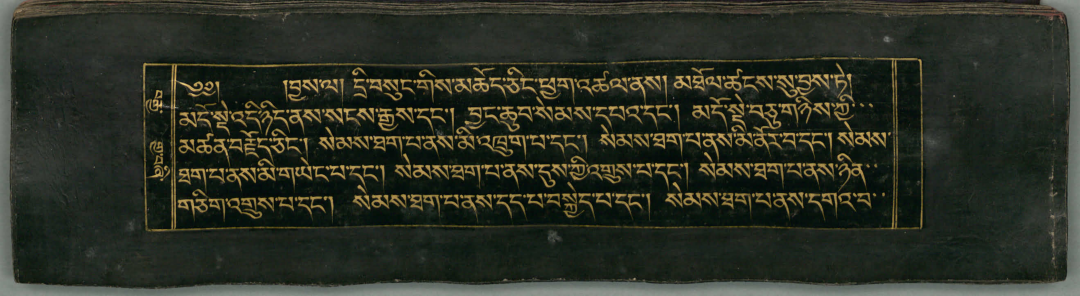 ༄༅། །བྱས་ལ། དྲི་བསུང་གིས་མཆོད་ཅིང་ཕྱག་འཚལ་ནས། མཐོལ་ཚངས་སུ་བྱས་ཏེ།
མདོ་སྡེ་འདི་ཉིད་ནས་སངས་རྒྱས་དང་། བྱང་ཆུབ་སེམས་དཔའ་དང་། མདོ་སྡེ་བཅུ་གཉིས་ཀྱི་
མཚན་བརྗོད་ཅིང་། སེམས་ཐག་པ་ནས་མི་འཕྲུག་པ་དང་། སེམས་ཐག་པ་ནས་མི་ནོར་བ་དང་། སེམས་
ཐག་པ་ནས་མི་གཡེང་པ་དང་། སེམས་ཐག་པ་ནས་དུས་ཀྱི་འགྲུས་པ་དང་། སེམས་ཐག་པ་ནས་ཉིན་
གཅིག་འགྲུས་པ་དང་། སེམས་ཐག་པ་ནས་དད་པ་བསྐྱེད་པ་དང་། སེམས་ཐག་པ་ནས་དགའ་བ་